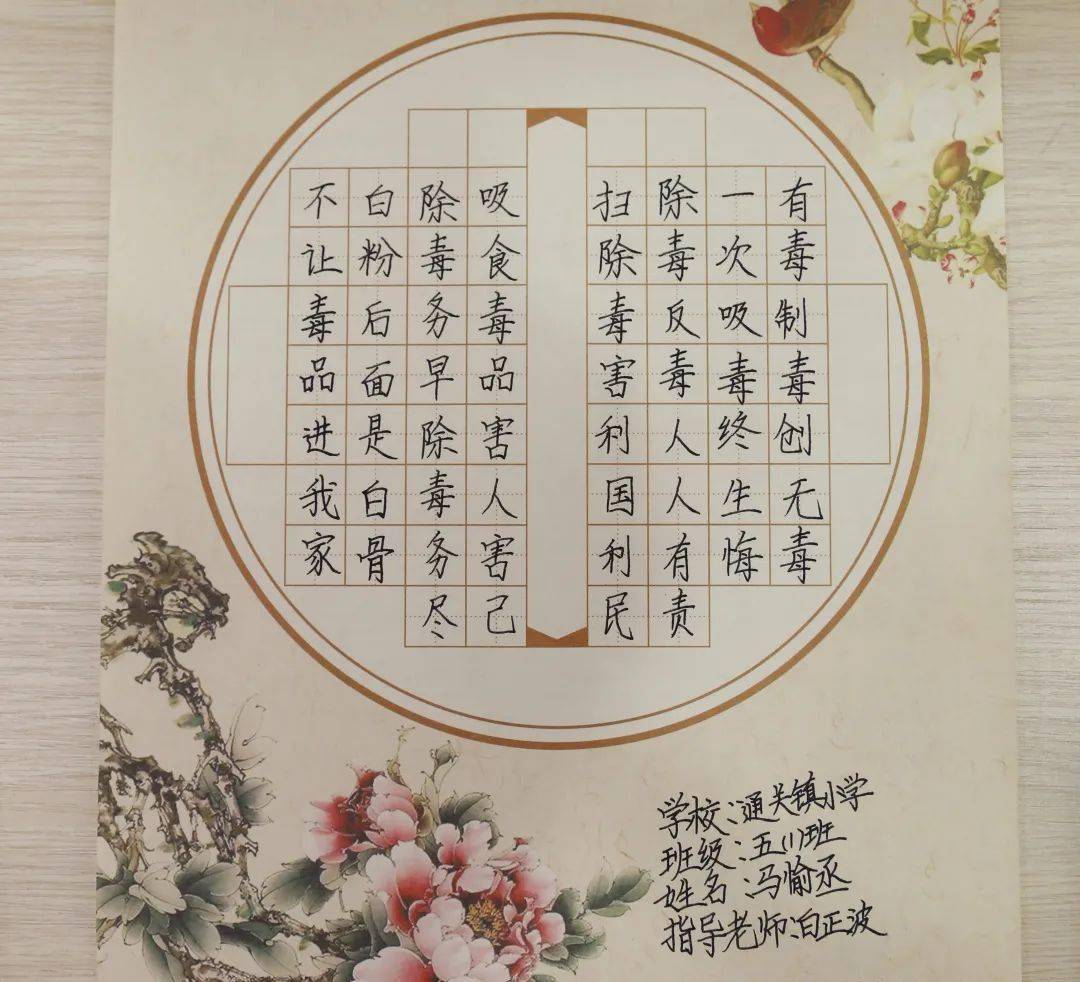 有毒制毒创无毒
一次吸毒终生悔
除毒反毒人人有责
扫除毒害利国利民
吸食毒品害人害己
除毒务早除毒务尽
白粉后面是白骨
不让毒品进我家
学校:通关镇小学
班级:五(1)班
姓名:马愉丞
指导老师:白正波